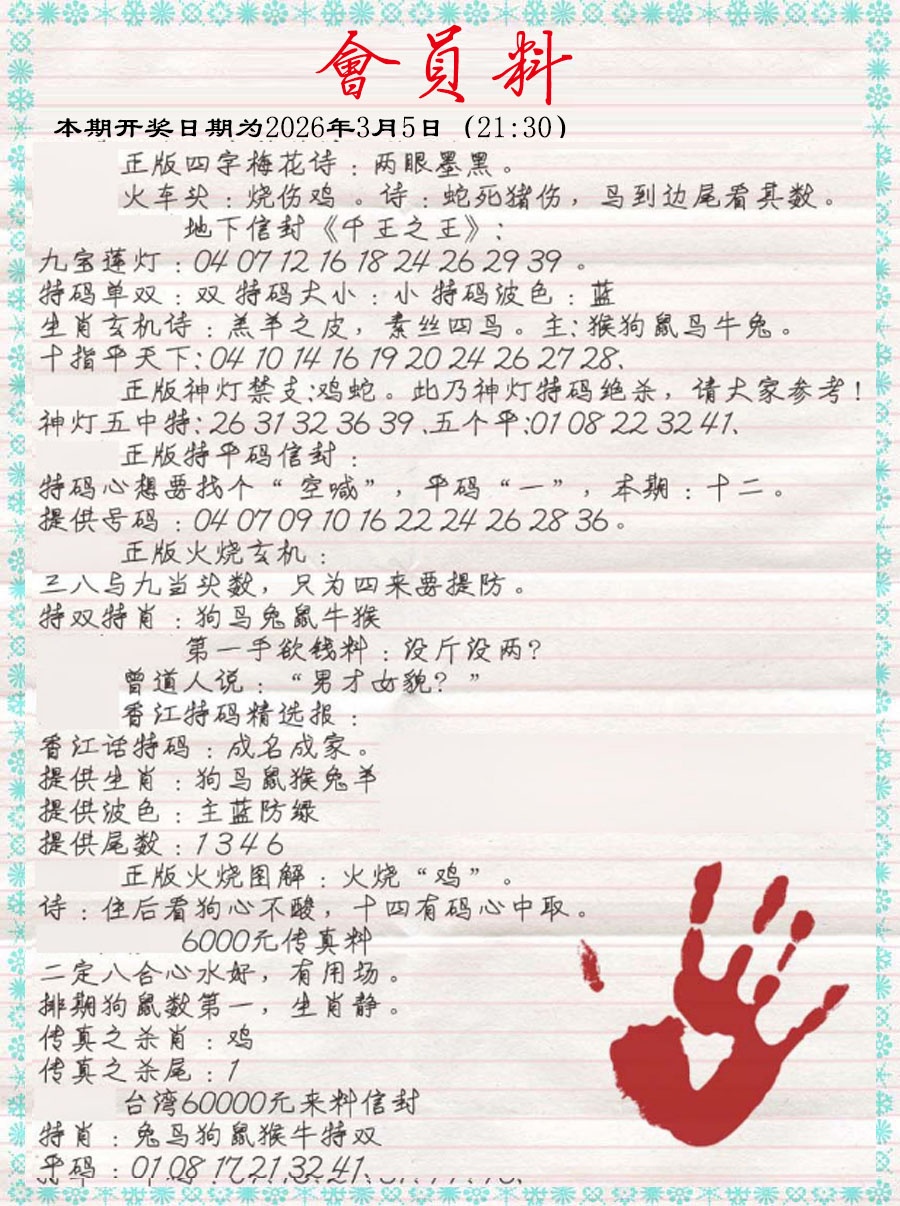 會員料
本期开奖日期为2026年3月5日（21:30）
正版四字梅花诗：两眼墨黑。
火车头：烧伤鸡 。诗：蛇死猪伤，鸟到边尾看其数。
地下信封《千王之王》：
九宝莲灯：04 07 12 16 18 24 26 29 39 。
特码单双：双 特码大小：小 特码波色：蓝
生肖玄机诗：羔羊之皮，素丝四马。主：猴狗鼠马牛兔。
十指平天下：04 10 14 16 19 20 24 26 27 28、
正版神灯禁支：鸡蛇。此乃神灯特码绝杀，请大家参考！
神灯五中特：26 31 32 36 39 、五个平：01 08 22 32 41、
正版特平码信封：
特码心想要找个“ 空喊”，平码“一”，本期：十二。
提供号码：04 07 09 10 16 22 24 26 28 36。
正版火烧玄机：
三八与九当头数，只为四来要提防。
特双特肖：狗马兔鼠牛猴
第一手欲钱料：没斤没两？
曾道人说：“男才女貌？”
香江特码精选报：
香江话特码：成名成家。
提供生肖：狗马鼠猴兔羊
提供波色：主蓝防绿
提供尾数：1 3 4 6
正版火烧图解：火烧“鸡”。
诗：住后看狗心不酸，十四有码心中取。
6000元传真料
二定八合心水好，有用场。
排期狗鼠数第一，生肖静。
传真之杀肖：鸡
传真之杀尾：1
台湾60000元来料信封
特肖：兔马狗鼠猴牛特双
平码：01 08 17 21 32 41、